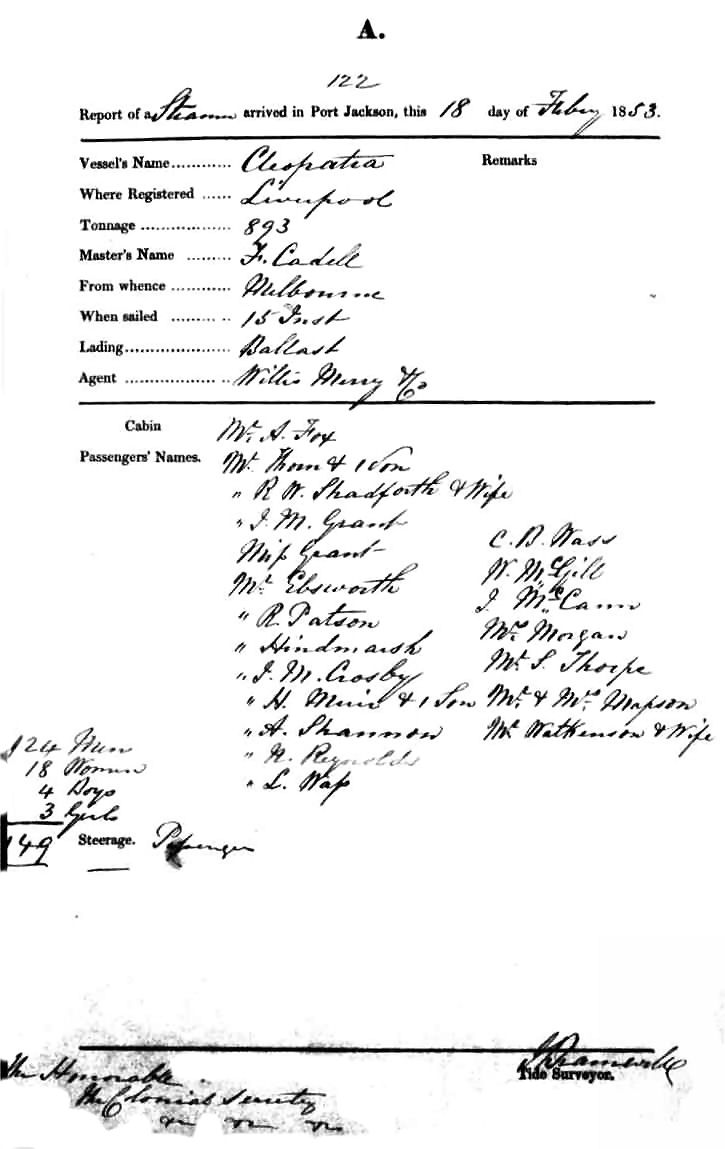 A.
122
Report of a Steamer arrived in Port Jackson, this 18 day of Feby 1853.
Vessel's Name............ Cleopatra
Remarks
Where Registered ...... Liverpool
Tonnage .................. 893
Master's Name ......... F. Cadell
From whence ............ Melbourne
When sailed ......... .. 15 Inst
Lading...................... Ballast
Agent .................. .. Willis Merry & Co
Cabin
Passengers' Names.
Mr. A. Fox
Mr. Thom & 1 Son
" R. W. Shadforth & Wife
" J. M. Grant
Miss Grant
Mr. Ebsworth
" R. Patson
" Hindmarsh
" J. M. Crosby
" H. Muir & 1 Son
" A. Shannon
" N. Reynolds
" L. Wass
C. B. Wass
W. McGill
J. McCann
Mrs. Morgan
Mr. S. Thorpe
Mr. & Mrs. Mapson
Mr. Watkinson & Wife
124 Men
18 Women
4 Boys
3 Girls
149
Steerage. Passengers
Tide Surveyor.
The Honorable
The Colonial Secretary
&c &c &c